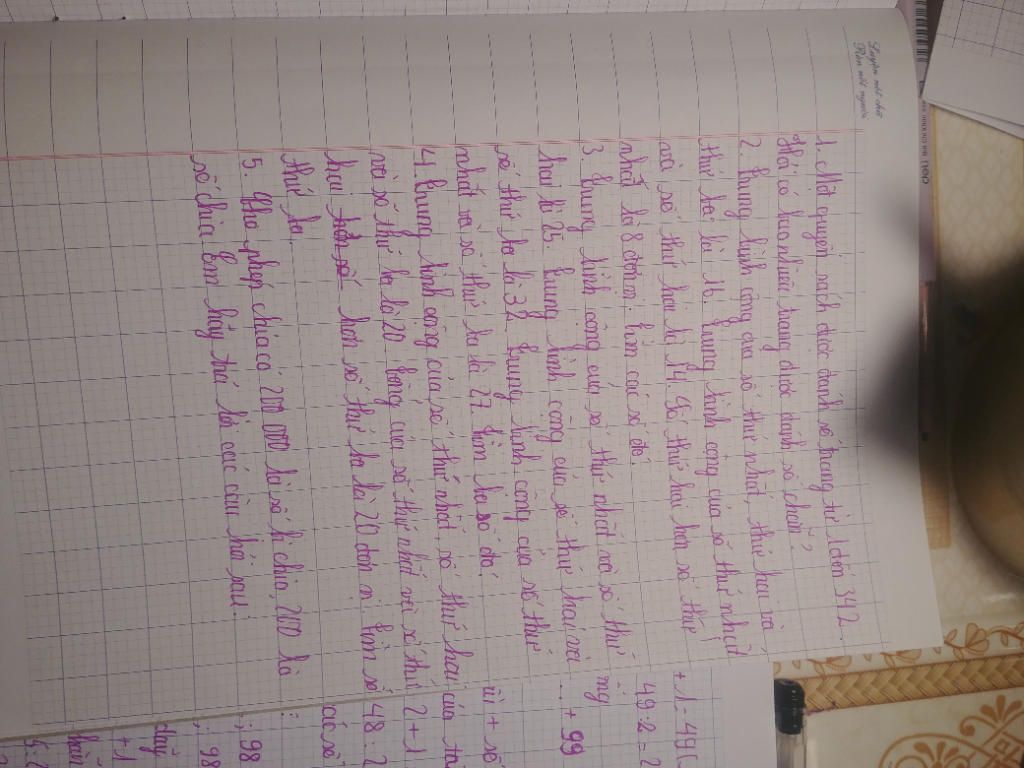 Luyện nét chữ
Rèn nết người
1. Một quyển sách được đánh số trang từ 1 đến 342.
Hỏi có bao nhiêu trang được đánh số chẵn?
2. Trung bình cộng của số thứ nhất, thứ hai và
thứ ba là 16. Trung bình cộng của số thứ nhất
và số thứ hai là 14. Số thứ hai hơn số thứ
nhất là 8 đơn vị. Tìm các số đó.
3. Trung bình cộng của số thứ nhất và số thứ
hai là 25. Trung bình cộng của số thứ hai và
số thứ ba là 32. Trung bình cộng của số thứ
nhất và số thứ ba là 27. Tìm ba số đó.
4. Trung bình cộng của số thứ nhất, số thứ hai
và số thứ ba là 20. Tổng của số thứ nhất và số thứ
hai hơn số thứ ba là 20 đơn vị. Tìm số
thứ ba.
5. Cho phép chia có 200 000 là số bị chia, 200 là
số chia. Em hãy trả lời các câu hỏi sau:
+ 1 = 49
49 : 2 = 2
+ 99
+ số
của
2 + 1
48 : 2
các số
98
98
+ 1